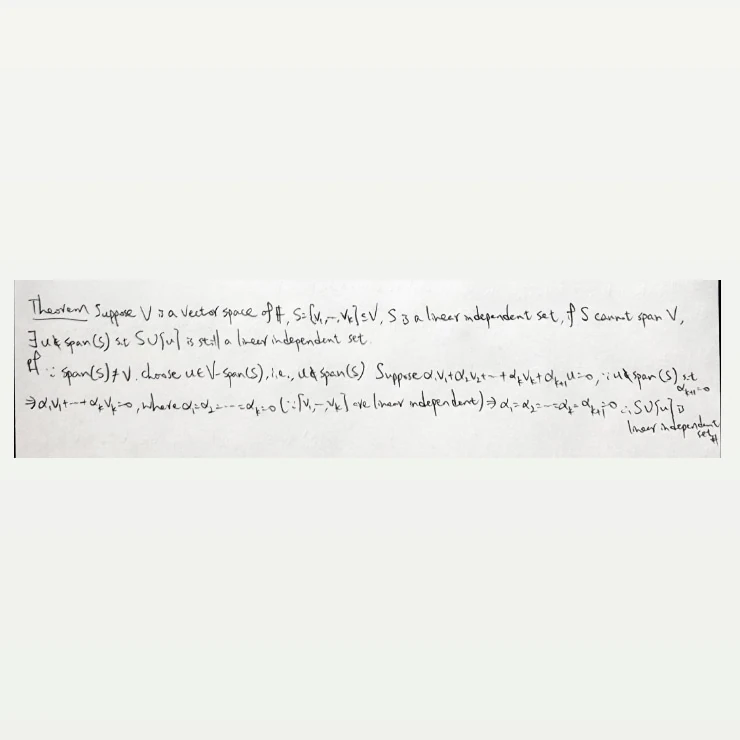 Theorem Suppose V is a vector space of F, S={v₁,…,vₖ}⊆V, S is a linear independent set, if S cannot span V,
∃u∉span(S) s.t S∪{u} is still a linear independent set.
pf ∵ span(S)≠V. choose u∈V-span(S), i.e., u∉span(S) Suppose α₁v₁+α₂v₂+…+αₖvₖ+αₖ₊₁u=0, ∵u∉span(S) s.t αₖ₊₁=0
⇒α₁v₁+…+αₖvₖ=0, where α₁=α₂=…=αₖ=0 (∵{v₁,…,vₖ} are linear independent) ⇒ α₁=α₂=…=αₖ=αₖ₊₁=0 ∴S∪{u} is
linear independent
set #